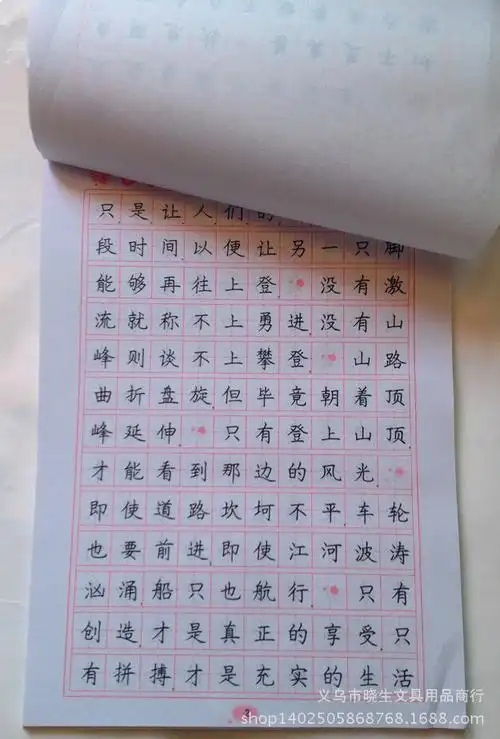 只是让人们的
段时间以便让另一只脚
能够再往上登 没有激
流就称不上勇进 没有山
峰则谈不上攀登 山路
曲折盘旋但毕竟朝着顶
峰延伸 只有登上山顶
才能看到那边的风光
即使道路坎坷不平车轮
也要前进即使江河波涛
汹涌船只也航行 只有
创造才是真正的享受只
有拼搏才是充实的生活
义乌市晓生文具用品商行
shop1402505868768.1688.com